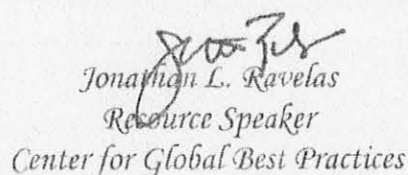 Jonathan L. Ravelas
Resource Speaker
Center for Global Best Practices